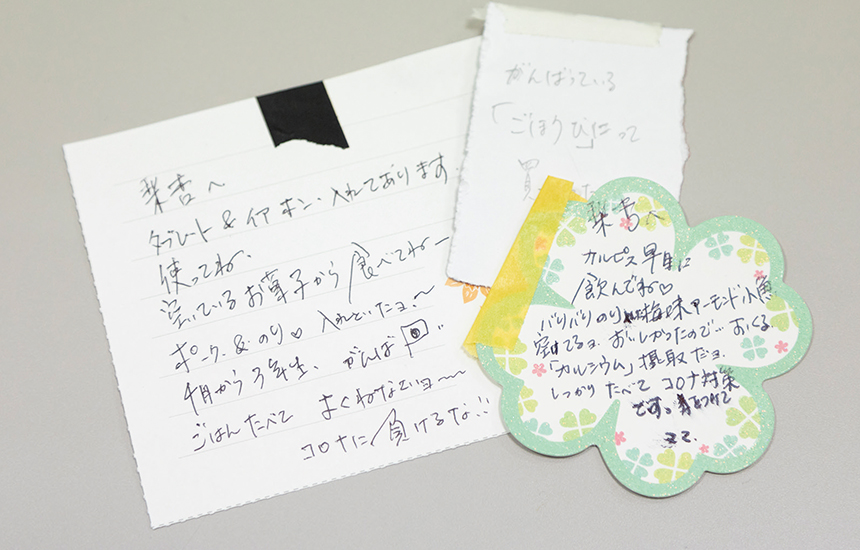 梨杏へ
タブレット&イアホン、入れております。
使ってね、
空いているお菓子から食べてねー
ポーク&のり♡入れといたヨ〜
4月から3年生、がんば
ごはんたべて まくねなでいヨ〜〜
コロナに負けるな!!
がんばっている
「ごほうび」にって
買 た
梨杏へ
カルピス早目に
飲んでね♡
バリバリのり 梅味アーモンド小魚
空けてるヨ。おいしかったので…おくる。
「カルシウム」摂取だヨ。
しっかりたべて コロナ対策
です。 つけて